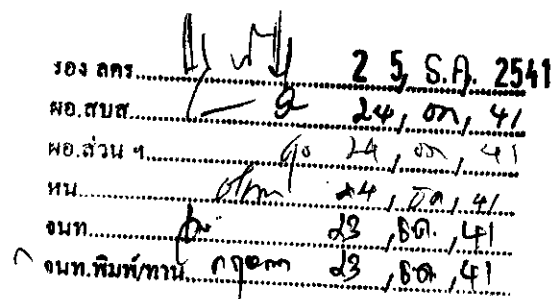 รอง ลคร. 2 5, S.A. 2541
ผอ.สบส. 24, ธค, 41
ผอ.ส่วน ฯ 24, ธค, 41
หน. 24, ธค, 41
จนท. 23, ธค., 41
จนท.พิมพ์/ทาน 23, ธค, 41